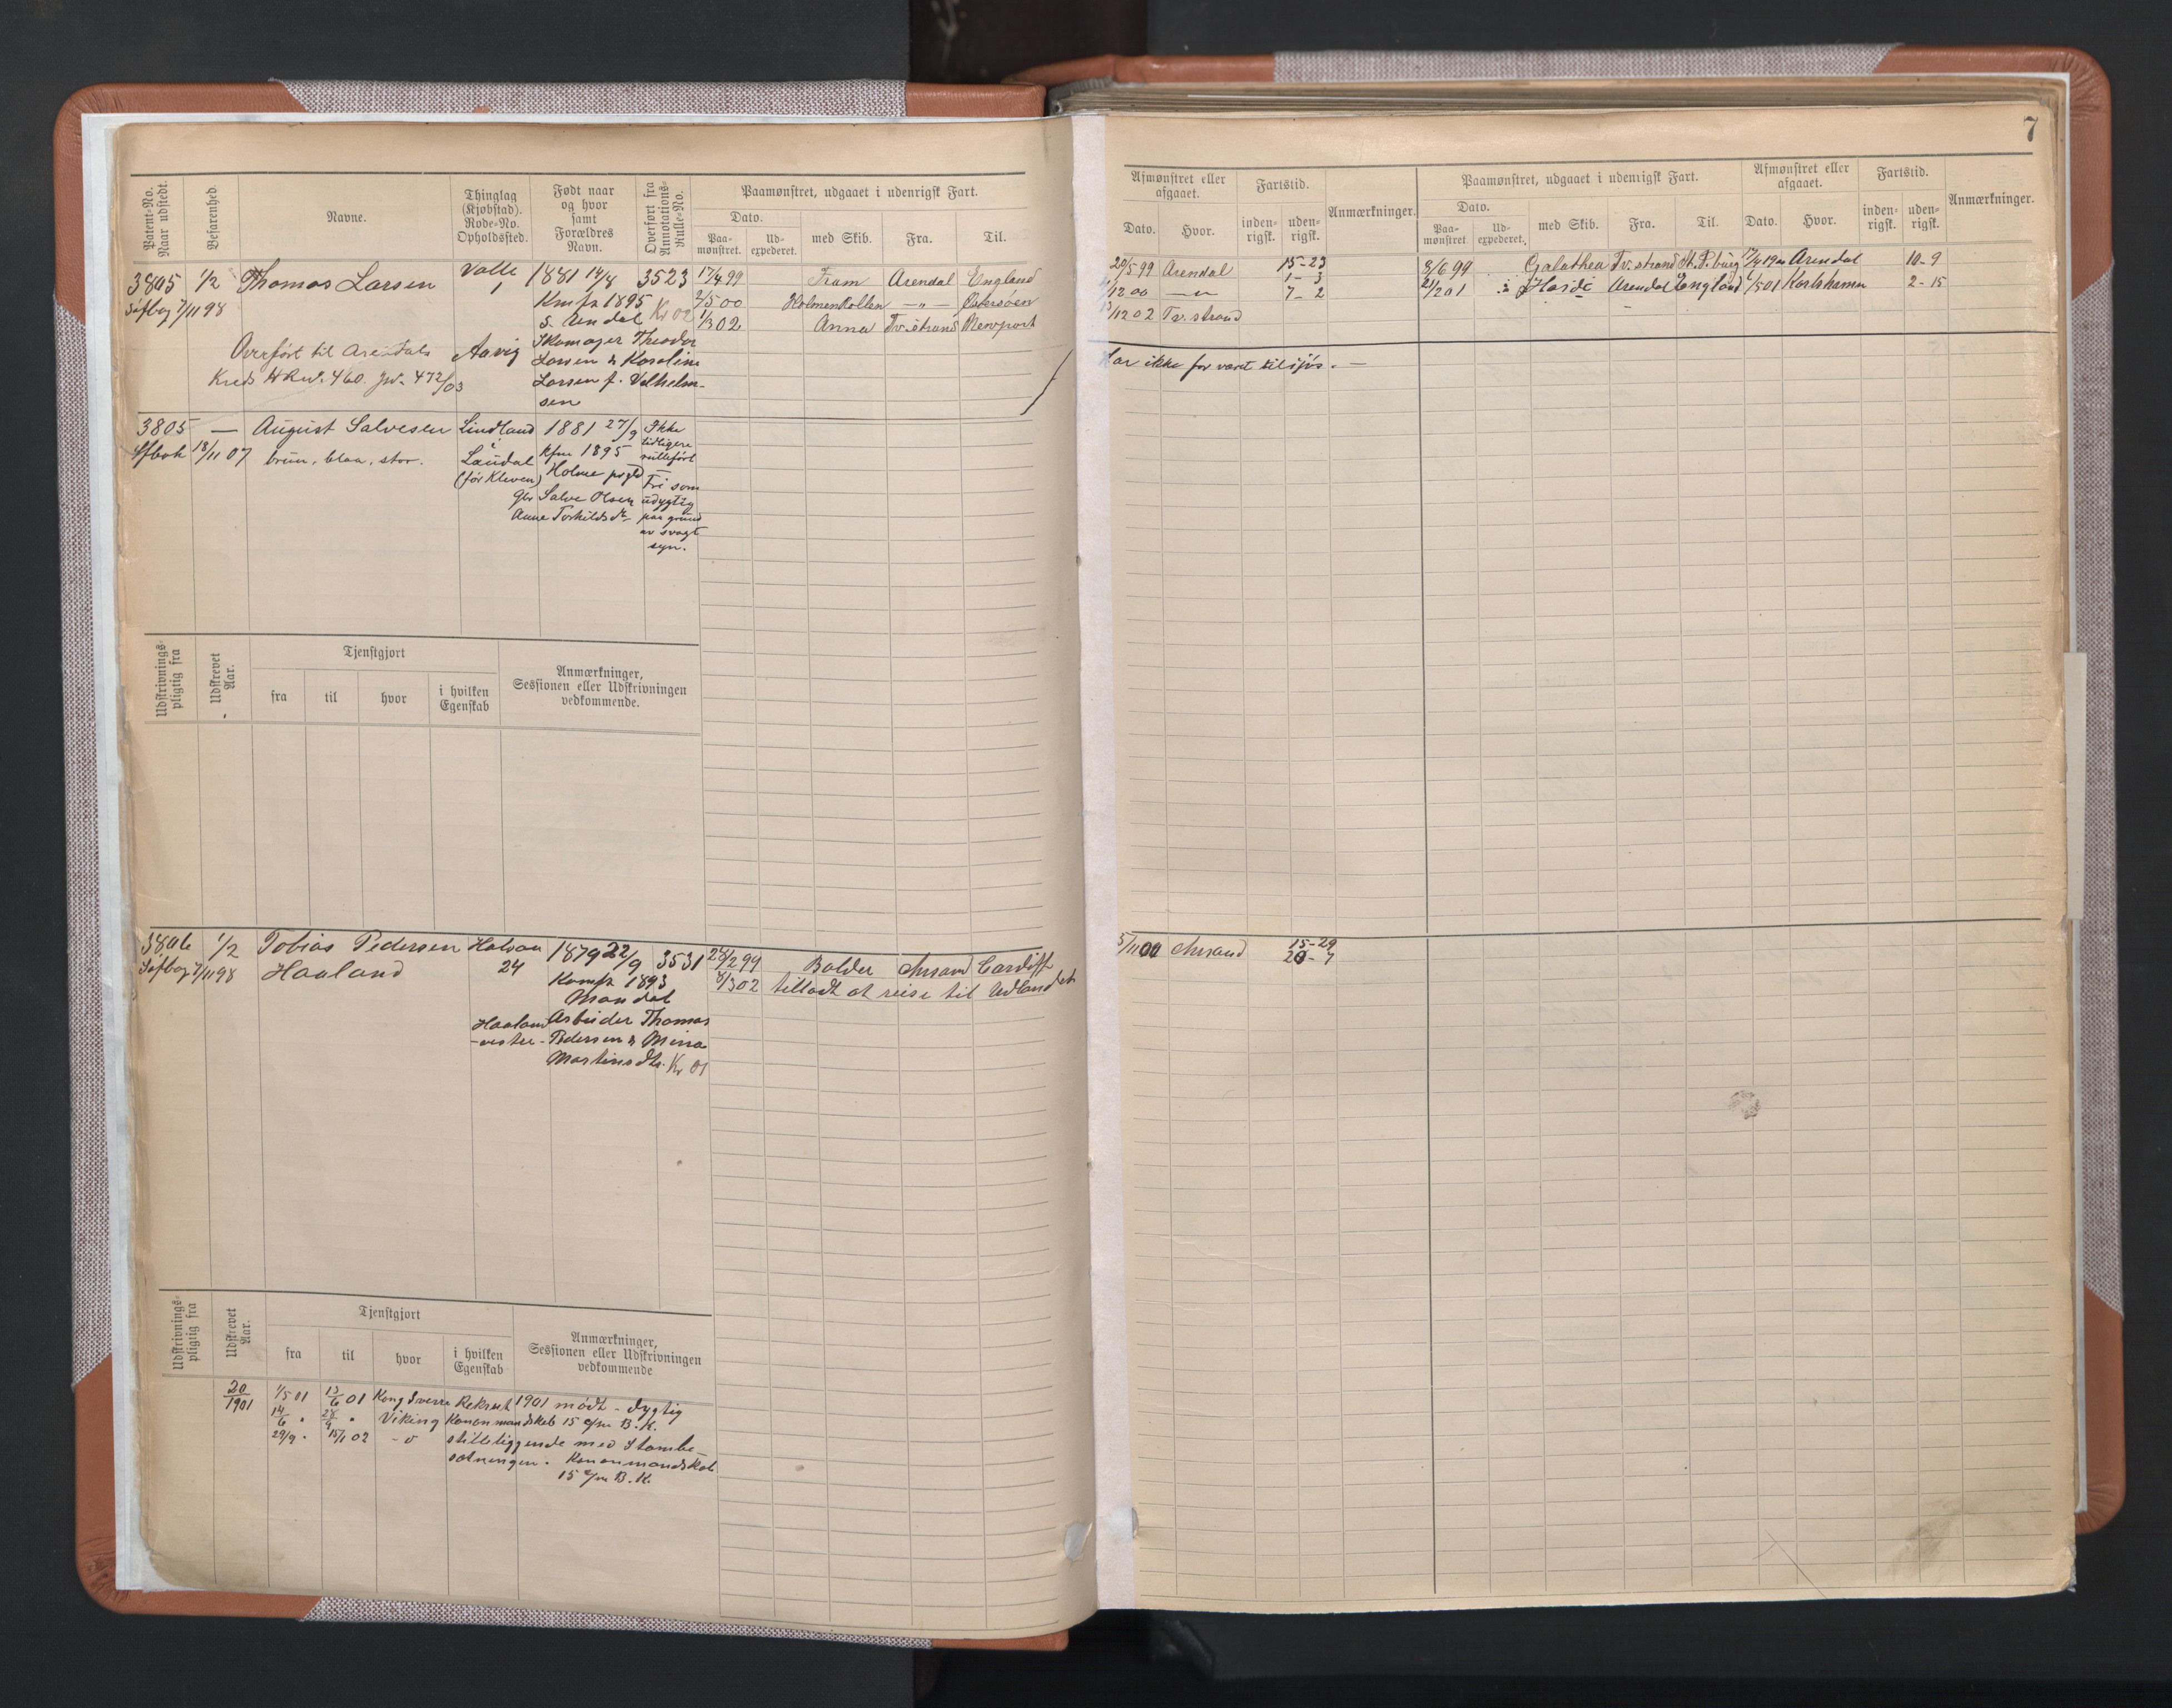 7
Patent-No. Naar udstedt.
Befarenhed.
Navne.
Thinglag (Kjøbstad). Rode-No. Opholdssted.
Født naar og hvor samt Forældres Navn.
Overført fra Annotations-Rulle-No.
Paamønstret, udgaaet i udenrigsk Fart.
Dato.
Paa-mønstret.
Ud-expederet.
med Skib.
Fra.
Til.
3805 1/2 Thomas Larsen Valle 1881 14/8 3523 17/4 99 Fram Arendal England
Søfbog 7/11 98 1 Kmfr 1895 Kr 02 2/5 00 Holmenkollen —"— Østersøen
S. Arendal 1/3 02 Anna Tv.strand Newport
Overført til Arendals Aavig Skomager Theodor
Kreds HRul. 460. Jvn. 472/03 Larsen & Karoline
Larsen f. Vilhelm-
sen
3805 — August Salvesen Lindland 1881 27/9 Ikke
Sfbok 13/11 07 brun, blaa, stor. i Kfm 1895 tidligere
Laudal Holme prgld rulleført
(før Kleven) Fri som
gbr Salve Olsen udygtig
Anne Torkildsdtr paa grund
av svagt
syn.
Udskrivnings-pligtig fra
Udskrevet Aar.
Tjenstgjort
fra
til
hvor
i hvilken Egenskab
Anmærkninger, Sessionen eller Udskrivningen vedkommende.
3806 1/2 Tobias Pedersen Halvaa 1879 22/9 3531 28/2 99 Balder Chrsand Cardiff
Søfbog 7/11 98 Haaland 24 Konf 1893 8/3 02 tilladt at reise til Udlandet
Mandal
Haaland Arbeider Thomas
-vester- Pedersen & Mina
Martinsdtr. Kr 01
Udskrivnings-pligtig fra
Udskrevet Aar.
Tjenstgjort
fra
til
hvor
i hvilken Egenskab
Anmærkninger, Sessionen eller Udskrivningen vedkommende
20/1901 1/5 01 13/6 01 Kong Sverre Rekrut 1901 mødt - dygtig
14/6 " 28/9 " Viking Kanonmandskab 15 c/m B.K.
29/9 " 15/1 02 - o stilleliggende med Stambe-
sætningen. Kanonmandskab
15 c/m B.K.
Afmønstret eller afgaaet.
Dato.
Hvor.
Fartstid.
inden-rigsk.
uden-rigsk.
Anmærkninger.
Paamønstret, udgaaet i udenrigsk Fart.
Dato.
Paa-mønstret
Ud-expederet.
med Skib.
Fra.
Til.
Afmønstret eller afgaaet.
Dato.
Hvor.
Fartstid.
inden-rigsk.
uden-rigsk.
Anmærkninger.
20/5 99 Arendal 15-23 3/6 99 Galathea Tv.strand St. P.burg 17/4 1900 Arendal 10-9
/12 00 —"— 1-3 21/2 01 Arendal England /5 01 Karlshamn 2-15
7-2
/12 02 Tv.strand
Har ikke før været tilsjøs. —
5/11 00 Chrsand 15-29
20-7